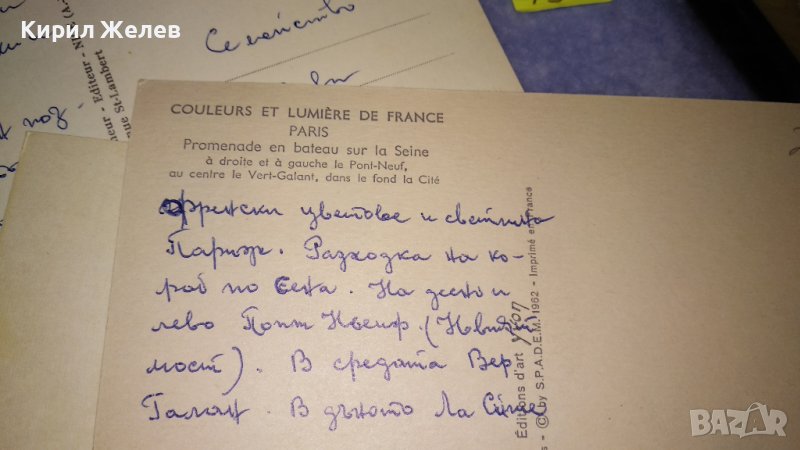 Кирил Желев
Семейство
поз-
neur - Editeur - N
que St-Lambert
COULEURS ET LUMIÈRE DE FRANCE
PARIS
Promenade en bateau sur la Seine
à droite et à gauche le Pont-Neuf,
au centre le Vert-Galant, dans le fond la Cité
френски цветове и светлина
Париж. Разходка на ко-
раб по Сена. На дясно и
лево Понт Ньоф. (Новият
мост). В средата Вер
Галан. В дъното Ла Сите
Editions d'art Yvon
s - © by S.P.A.D.E.M. 1962 - Imprimé en France
BAZAR